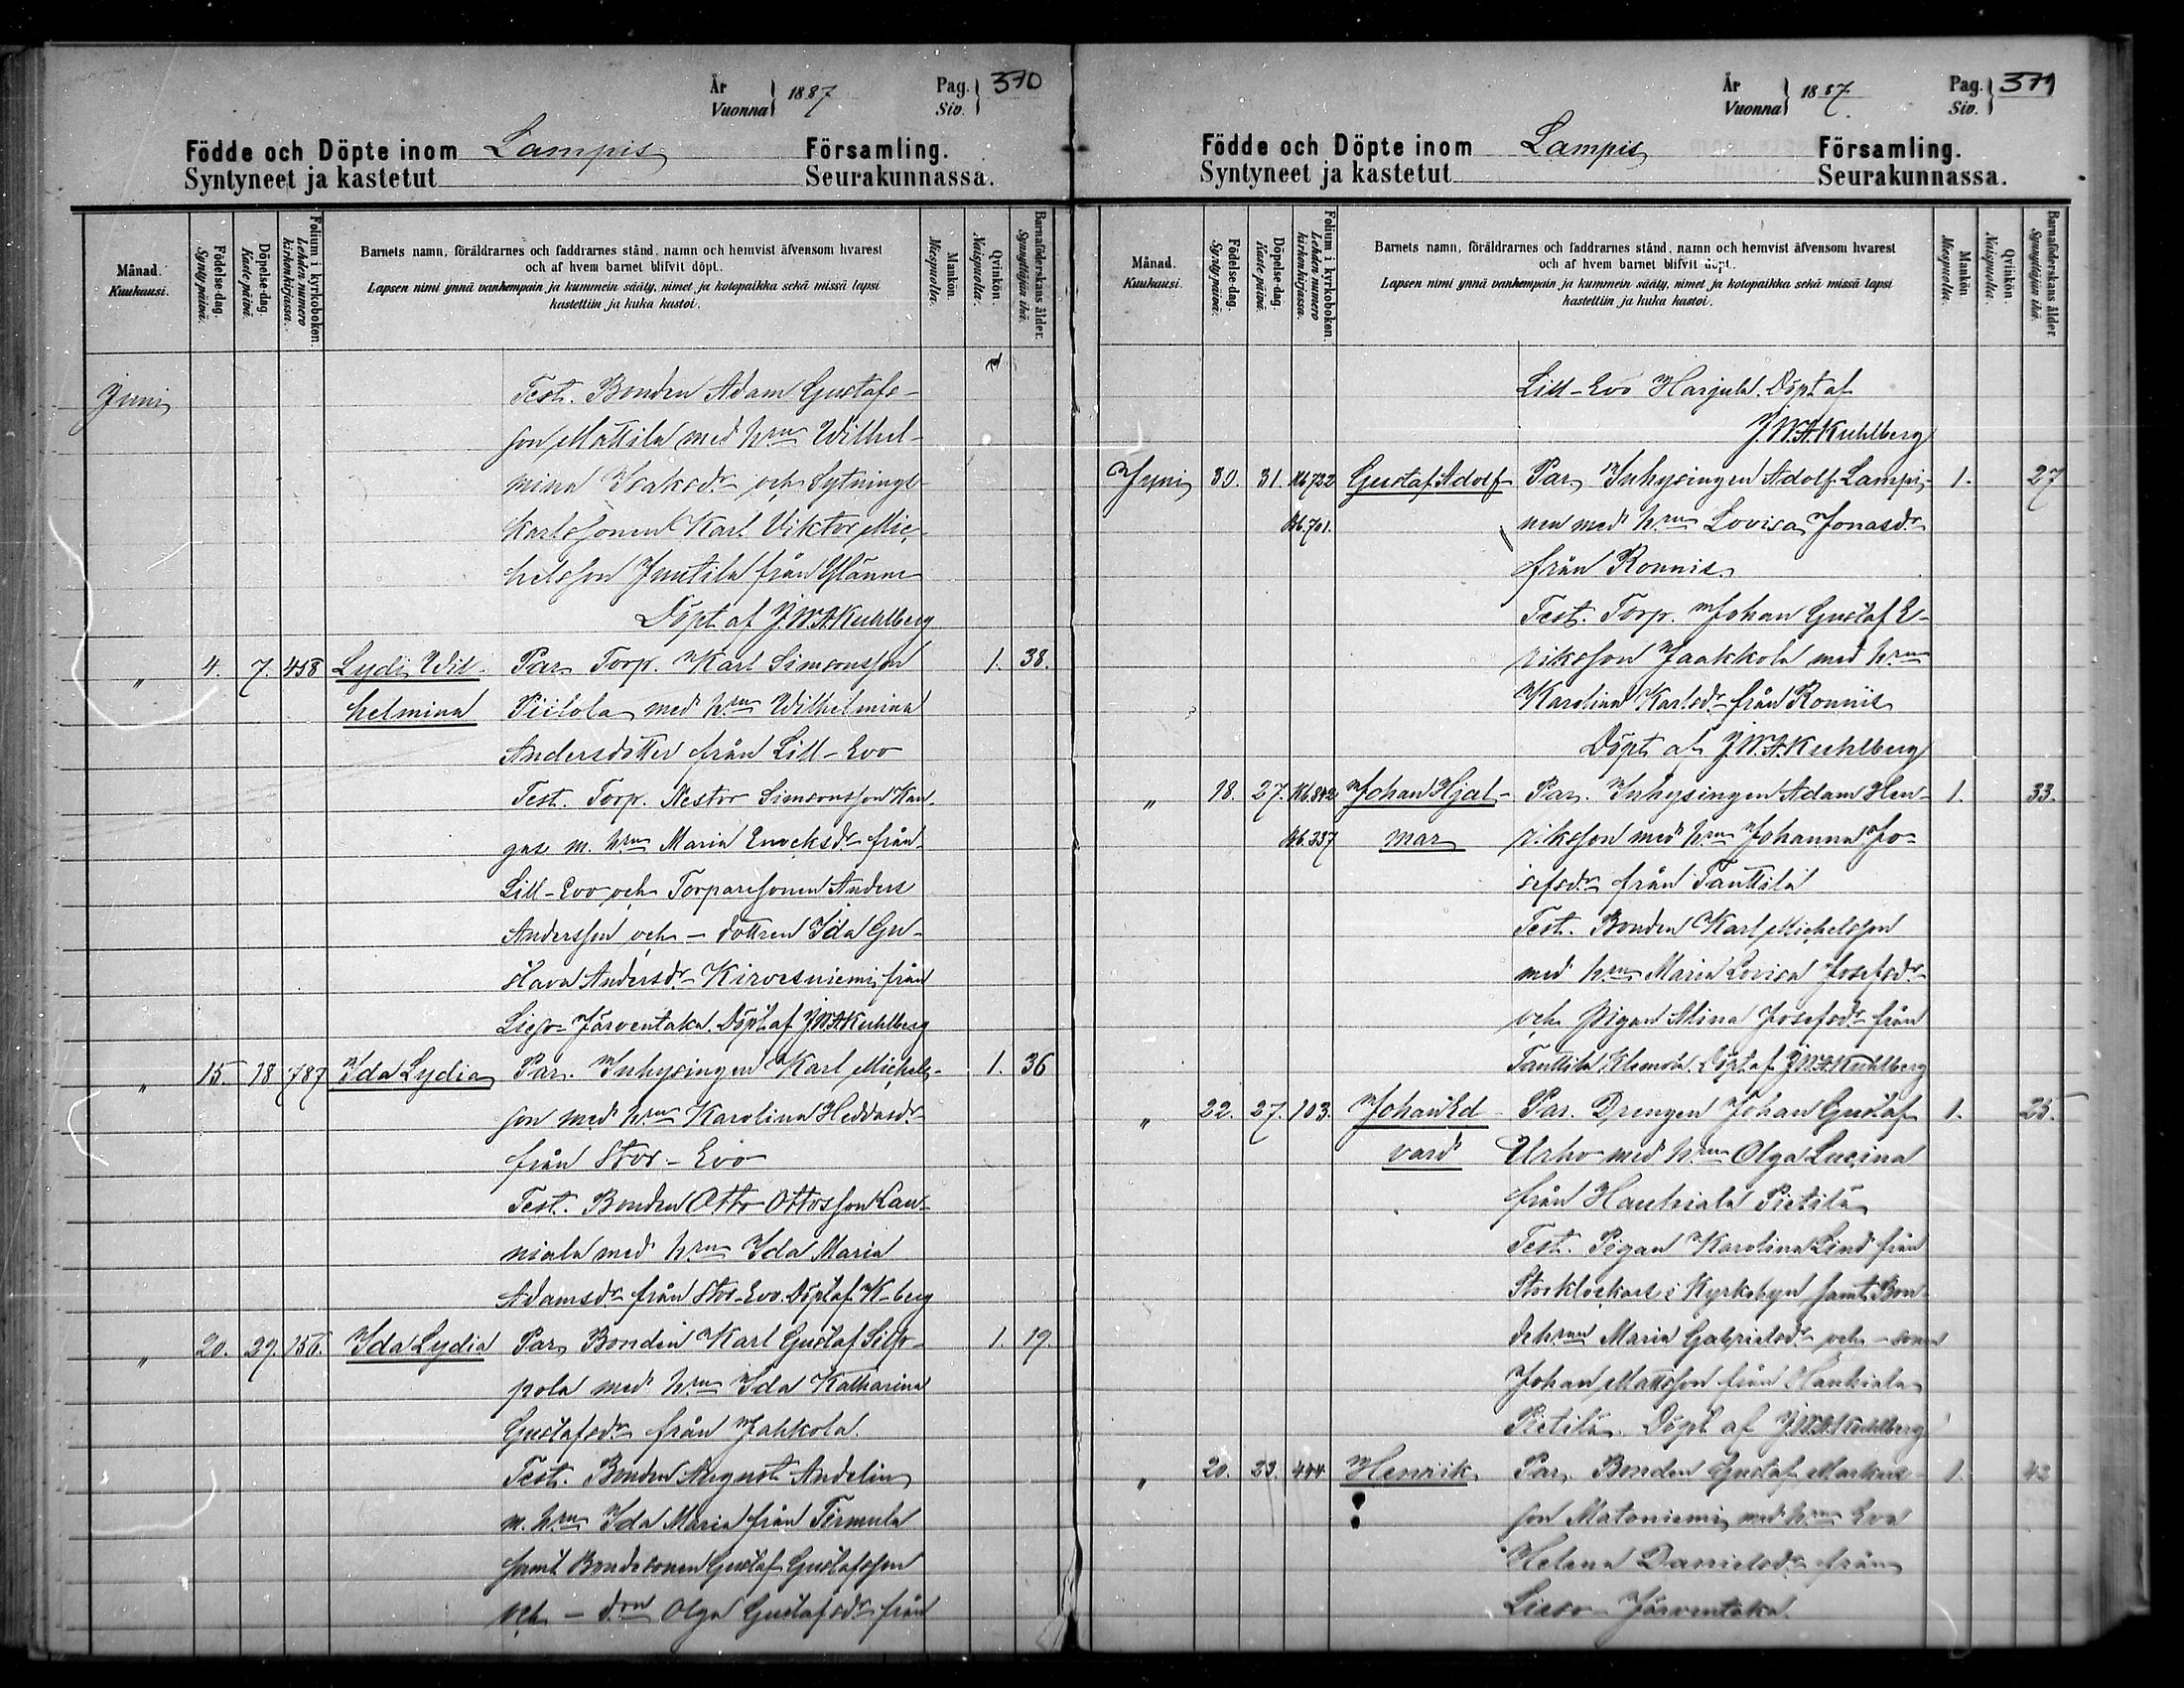 År
Vuonna 1887 Pag. 370
Siv.
Födde och Döpte inom Lampis Församling.
Syntyneet ja kastetut Seurakunnassa.
Månad.
Kuukausi.
Födelse-dag.
Synty päivä.
Döpelse-dag.
Kaste päivä.
Folium i kyrkoboken.
Lehden numero kirkonkirjassa.
Barnets namn, föräldrarnes och faddrarnes stånd, namn och hemvist äfvensom hvarest
och af hvem barnet blifvit döpt.
Lapsen nimi ynnä vanhempain ja kummein sääty, nimet ja kotopaikka sekä missä lapsi
kastettiin ja kuka kastoi.
Mankön.
Miespuolta.
Qvinkön.
Naispuolta.
Barnaföderskans ålder.
Synnyttäjän ikä.
Juni Test. Bonden Adam Gustafs-
son Mattila med hru Wilhel-
mina Isaksdr och Sytnings-
karlssonen Karl Viktor Mic-
helsson Juntila från
Döpt af J.W.A. Kuhlberg
" 4. 7. 458 Lydi Wil- Par. Torp. Karl Simonsson 1. 38.
helmina Piilola med hru Wilhelmina
Andersdotter från Lill-Evo
Test. Torp. Nestor Simonsson Kan-
gas m. hru Maria Enocksdr från
Lill-Evo och Torparesonen Anders
Andersson och - dottren Ida Gu-
stava Andersdr Kirvesniemi från
Lieso-Järventaka. Döpt af J.W.A. Kuhlberg
" 15. 18 787 Ida Lydia Par. Inhysingen Karl Michels- 1. 36
son med hru Karolina Heddasdr
från Stor-Evo
Test. Bonden Otto Ottosson Kau-
niala med hru Ida Maria
Adamsdr från Stor-Evo. Döpt af K-berg
" 20. 29. 156. Ida Lydia Par. Bonden Karl Gustaf Sip- 1. 19.
pola med hru Ida Katharina
Gustafsdr från Jahkola.
Test. Bonden August Andelin
m. hru Ida Maria från Tirmula
samt Bondesonen Gustaf Gustafsson
och - dren Olga Gustafsdr från
År
Vuonna 1887. Pag. 371
Siv.
Födde och Döpte inom Lampis Församling.
Syntyneet ja kastetut Seurakunnassa.
Månad.
Kuukausi.
Födelse-dag.
Synty päivä.
Döpelse-dag.
Kaste päivä.
Folium i kyrkoboken.
Lehden numero kirkonkirjassa.
Barnets namn, föräldrarnes och faddrarnes stånd, namn och hemvist äfvensom hvarest
och af hvem barnet blifvit döpt.
Lapsen nimi ynnä vanhempain ja kummein sääty, nimet ja kotopaikka sekä missä lapsi
kastettiin ja kuka kastoi.
Mankön
Miespuolta.
Qvinkön.
Naispuolta.
Barnaföderskans ålder
Synnyttäjän ikä.
Lill-Evo Harjula. Döpt af
J.W.A. Kuhlberg
Juni 30. 31. Kb 722 Gustaf Adolf Par. Inhysingen Adolf Lampi- 1. 27
Bb. 701. nen med hru Lovisa Jonasdr
från Ronnis.
Test. Torp. Johan Gustaf E-
riksson Jaakkola med hru
Karolina Karlsdr från Ronnis
Döpt af J.W.A. Kuhlberg
" 18. 27. Kb. 842 Johan Hjal- Par. Inhysingen Adam Hen- 1. 33.
Bb. 337 mar riksson med hru Johanna Jo-
sefsdr från Tanttila
Test. Bonden Karl Michelsson
med hru Maria Lovisa Josefsdr
och Pigan Mina Josefsdr från
Tanttila Klemola. Döpt af J.W.A. Kuhlberg
" 22. 27. 103. Johan Ed- Par. Drengen Johan Gustaf 1. 25.
vard Urho med hru Olga Lucina
från Hauhiala Pietilä
Test. Pigan Karolina Lind från
Storklockars i Kyrkobyn samt Bon-
dehrun Maria Gabrielsdr och - sonen
Johan Mattsson från Hauhiala
Pietilä. Döpt af J.W.A. Kuhlberg
" 20. 23. 444 Henrik Par. Bonden Gustaf Markus- 1. 42
son Matoniemi med hru Eva
Helena Danielsdr från
Lieso-Järventaka.